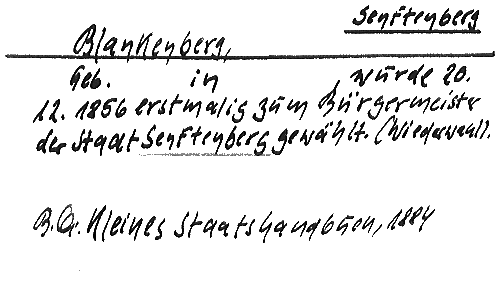 Senftenberg
Blankenberg,
Geb. in , wurde 20.
12. 1856 erstmalig zum Bürgermeister
der Stadt Senftenberg gewählt. (Wiederwahl).
B.Qu. Kleines Staatshandbuch, 1884